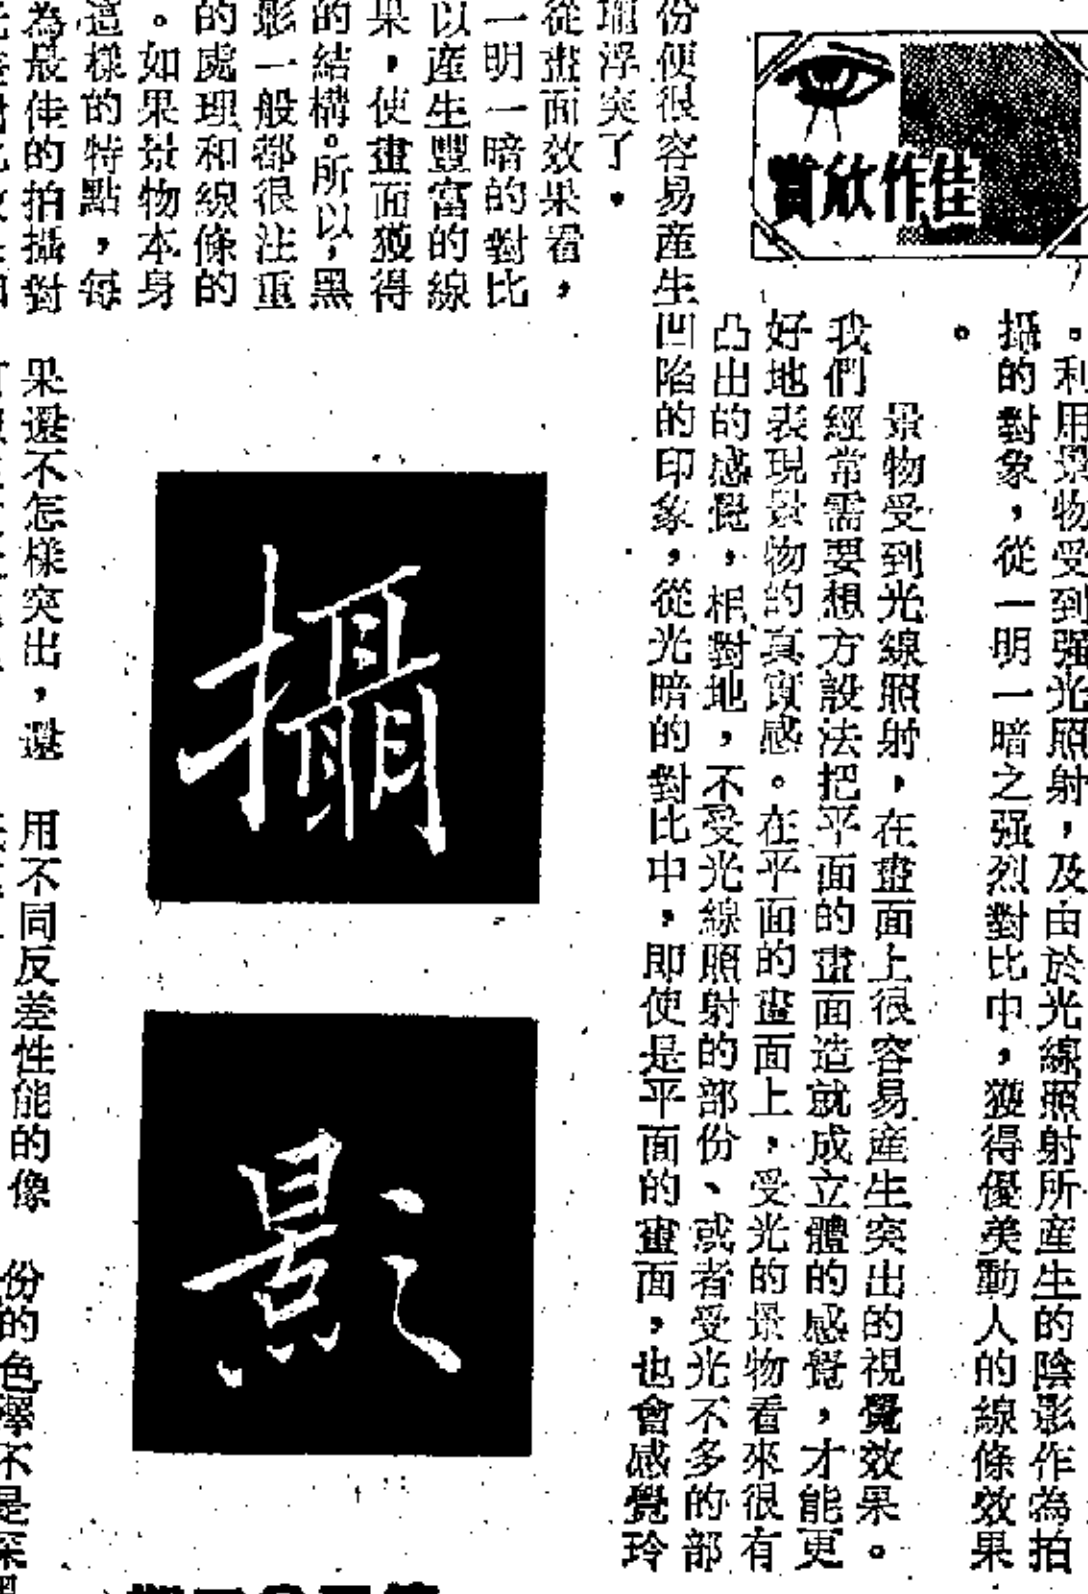 佳作欣賞
。利用景物受到强光照射，及由於光線照射所產生的陰影作為拍
攝的對象，從一明一暗之强烈對比中，獲得優美動人的線條效果
。
景物受到光線照射，在畫面上很容易產生突出的視覺效果。
我們經常需要想方設法把平面的畫面造就成立體的感覺，才能更
好地表現景物的真實感。在平面的畫面上，受光的景物看來很有
凸出的感覺，相對地，不受光線照射的部份、或者受光不多的部
份便很容易產生凹陷的印象，從光暗的對比中，即使是平面的畫面，也會感覺玲
瓏浮突了。
從畫面效果看，
一明一暗的對比
以產生豐富的線
果，使畫面獲得
的結構。所以，黑
影一般都很注重
的處理和線條的
。如果景物本身
這樣的特點，每
為最佳的拍攝對
攝
影
果還不怎樣突出，還
用不同反差性能的像
份的色澤不是深